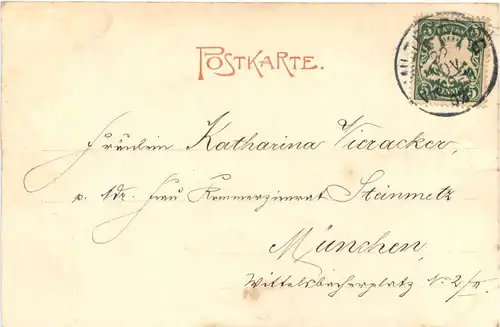 POSTKARTE.
Fräulein Katharina Vieracker,
p. Adr. Frau Kommerzienrat Steinmetz
München,
Wittelsbacherplatz No 2/II.